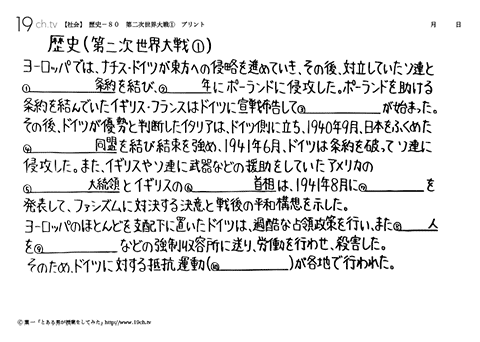 19ch.tv 【社会】 歴史－80 第二次世界大戦① プリント 月 日
歴史(第二次世界大戦①)
ヨーロッパでは、ナチス・ドイツが東方への侵略を進めていき、その後、対立していたソ連と
① 条約を結び、② 年にポーランドに侵攻した。ポーランドを助ける
条約を結んでいたイギリス・フランスはドイツに宣戦布告して③ が始まった。
その後、ドイツが優勢と判断したイタリアは、ドイツ側に立ち、1940年9月、日本をふくめた
④ 同盟を結び結束を強め、1941年6月、ドイツは条約を破ってソ連に
侵攻した。また、イギリスやソ連に武器などの援助をしていたアメリカの
⑤ 大統領とイギリスの⑥ 首相は、1941年8月に⑦ を
発表して、ファシズムに対決する決意と戦後の平和構想を示した。
ヨーロッパのほとんどを支配下に置いたドイツは、過酷な占領政策を行い、また⑧ 人
を⑨ などの強制収容所に送り、労働を行わせ、殺害した。
そのため、ドイツに対する抵抗運動(⑩ )が各地で行われた。
Ⓒ 葉一「とある男が授業をしてみた」http://www.19ch.tv